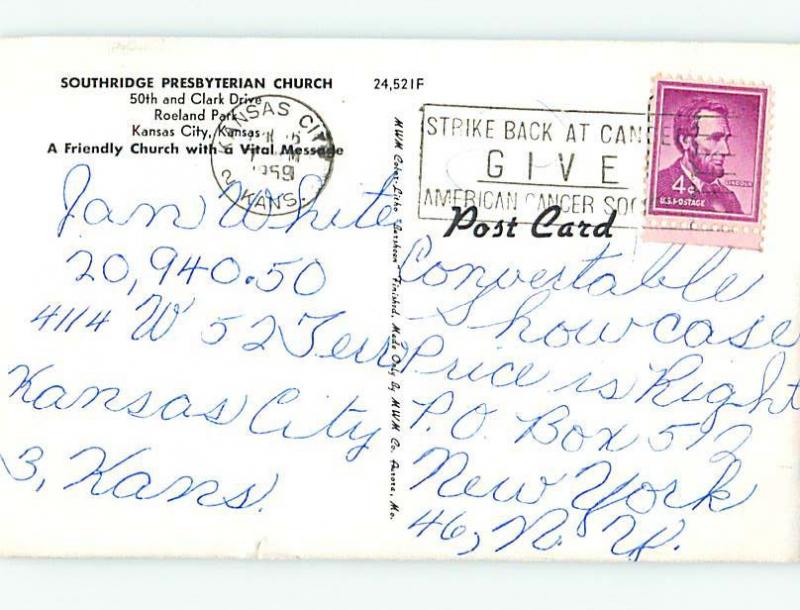 SOUTHRIDGE PRESBYTERIAN CHURCH
50th and Clark Drive
Roeland Park
Kansas City, Kansas
A Friendly Church with a Vital Message
24,521F
KANSAS CITY
2 KANS.
STRIKE BACK AT CANCER
GIVE
AMERICAN CANCER SOC
LINCOLN
4¢
U.S. POSTAGE
Post Card
MWM Color-Litho Finished, Made Only By MWM Co. Aurora, Mo.
Jan White
20,940.50
4114 W 52 Terr
Kansas City
3, Kans.
Convertable
Showcase
Price is Right
P.O. Box 512
New York
46, N.Y.